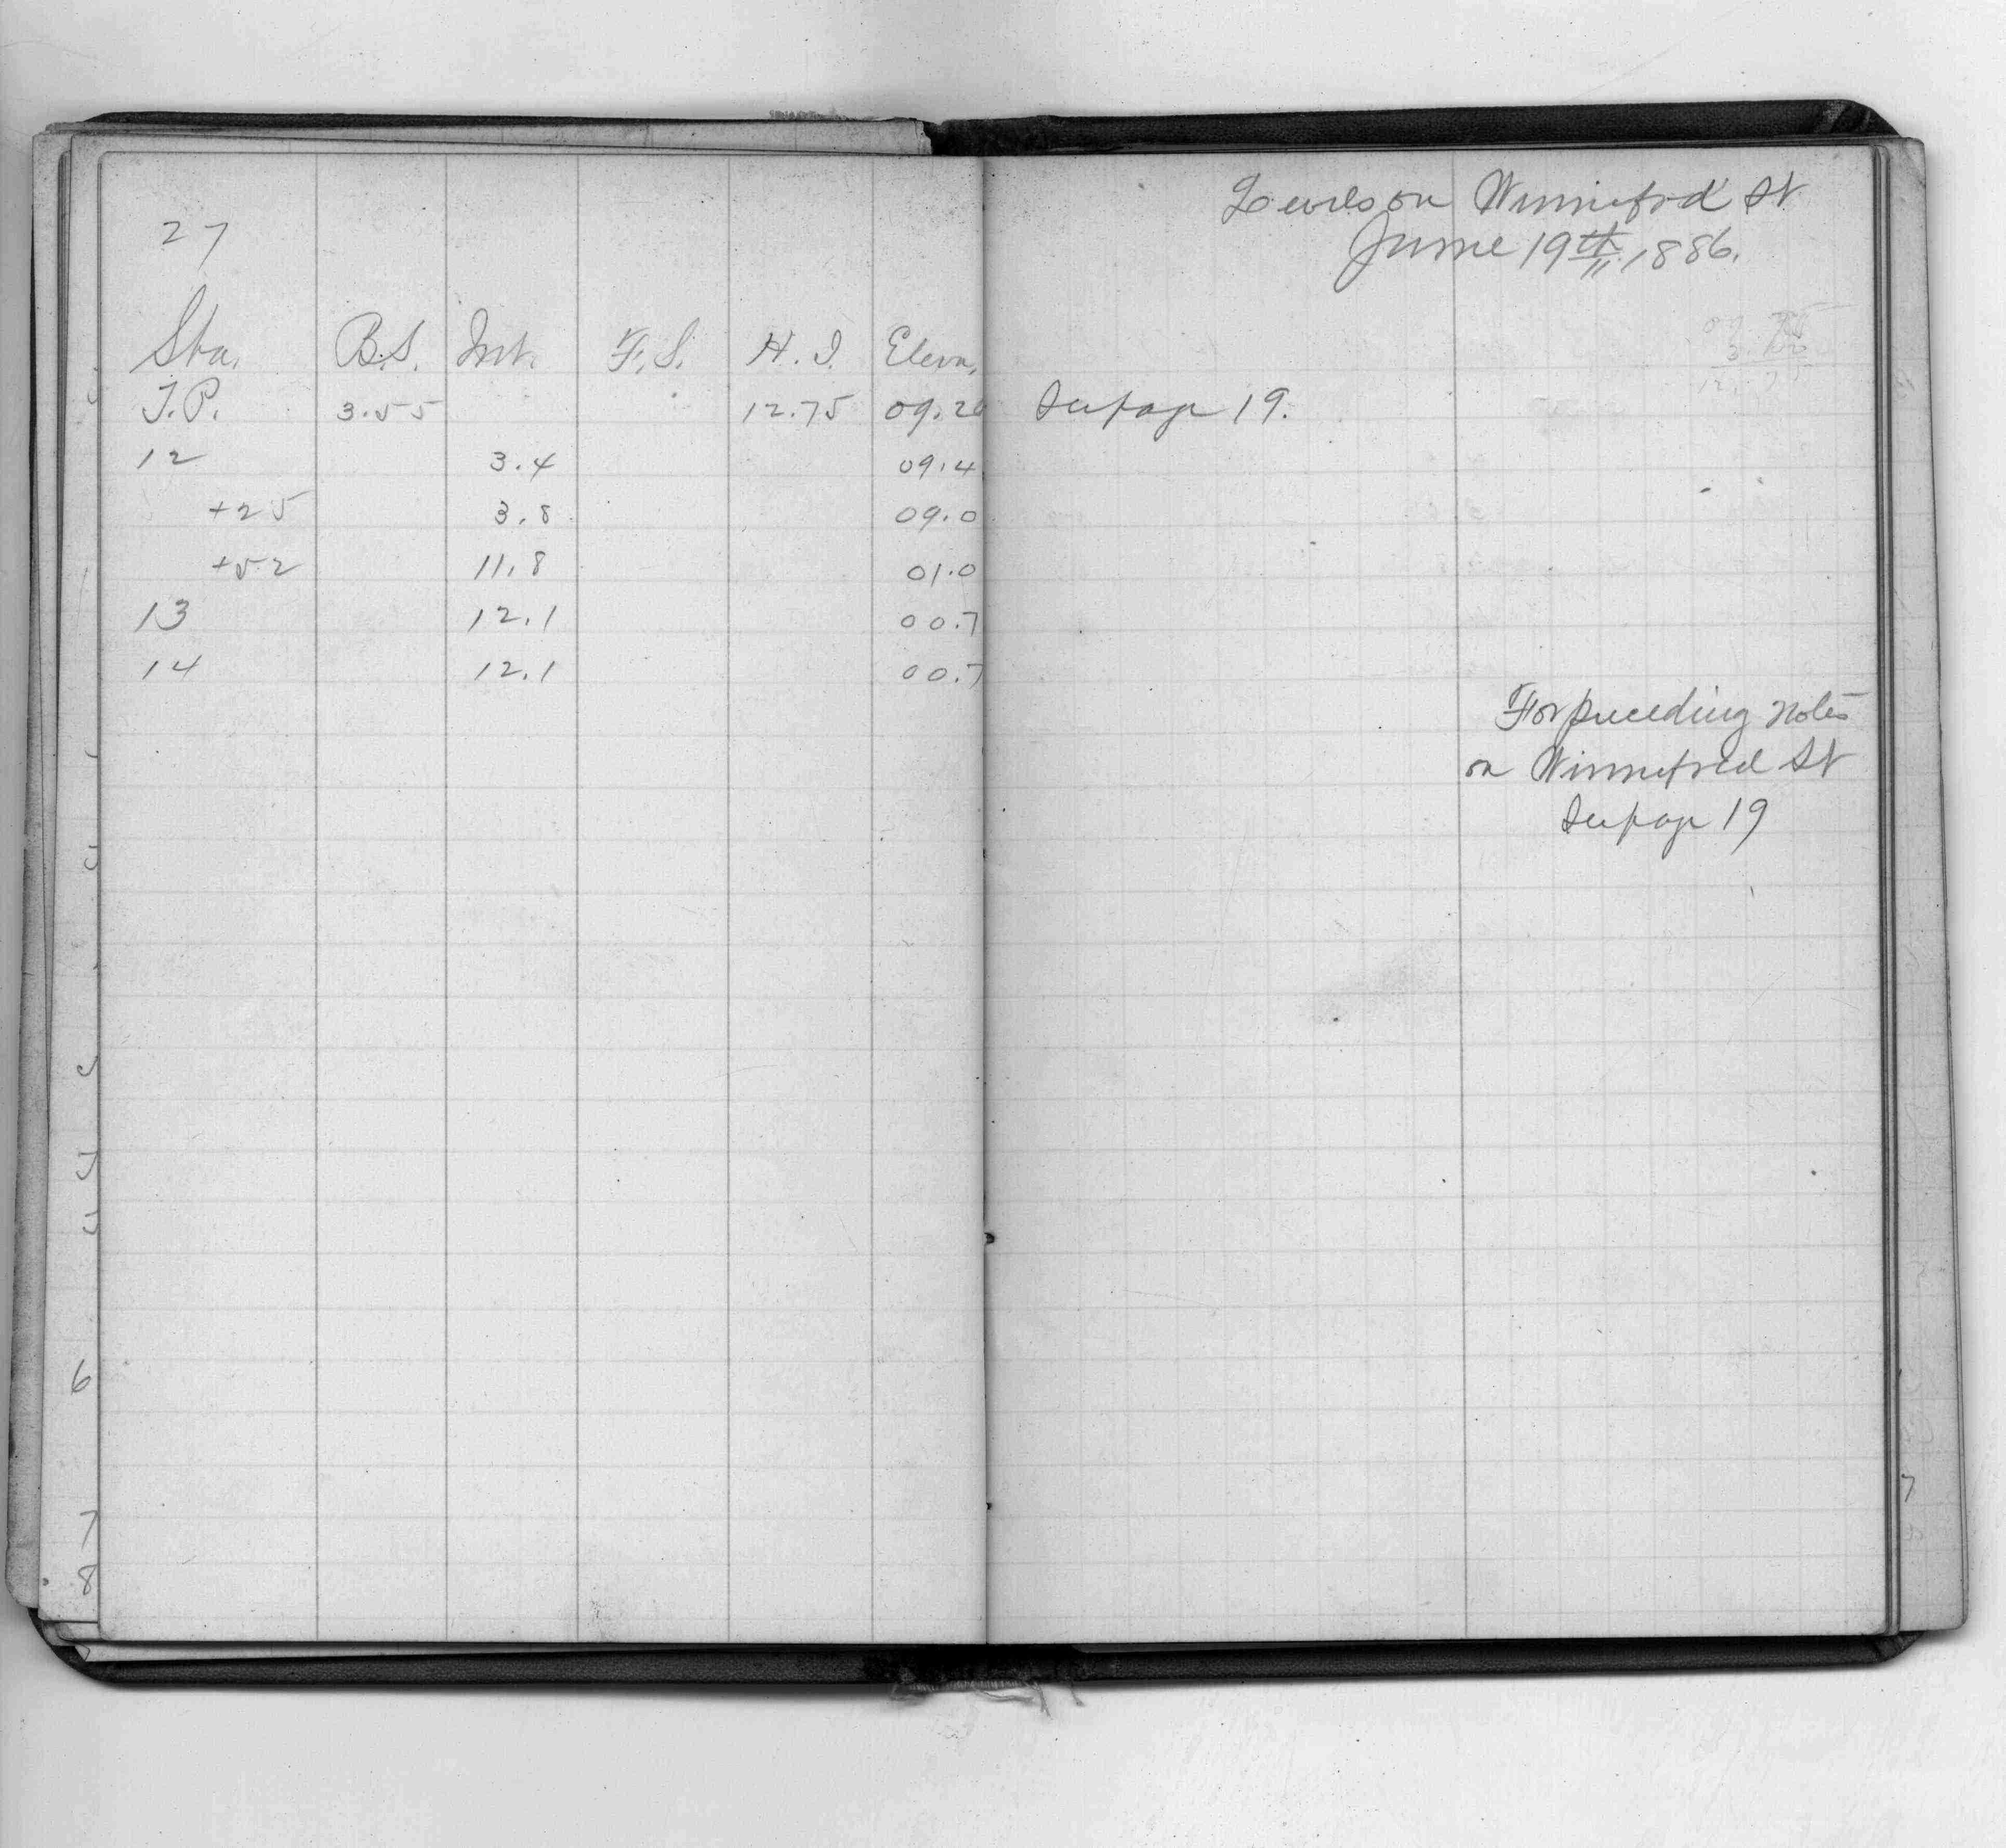 27
Sta. B.S. Int. F.S. H.I. Eleva.
T.P. 3.55 12.75 09.20
12 3.4 09.4
+25 3.8 09.0
+52 11.8 01.0
13 12.1 00.7
14 12.1 00.7
Levels on Winnifred St
June 19th, 1886.
See page 19.
For preceding notes
on Winnifred St
See page 19
6
7
8
7